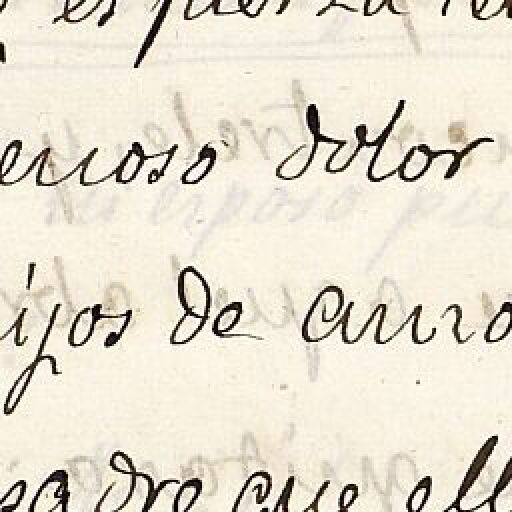 es fuerza
enoso dolor
ijos de amo
padre que ell